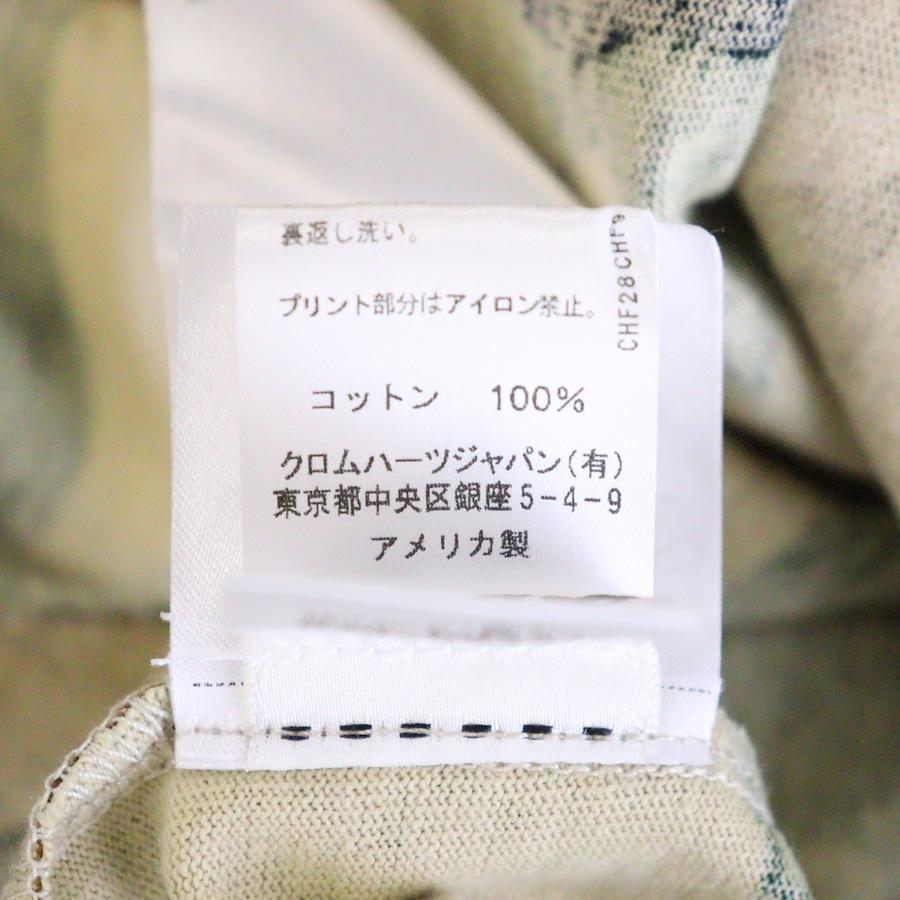 裏返し洗い。
プリント部分はアイロン禁止。
コットン 100%
クロムハーツジャパン(有)
東京都中央区銀座5-4-9
アメリカ製
CHF28CHF9